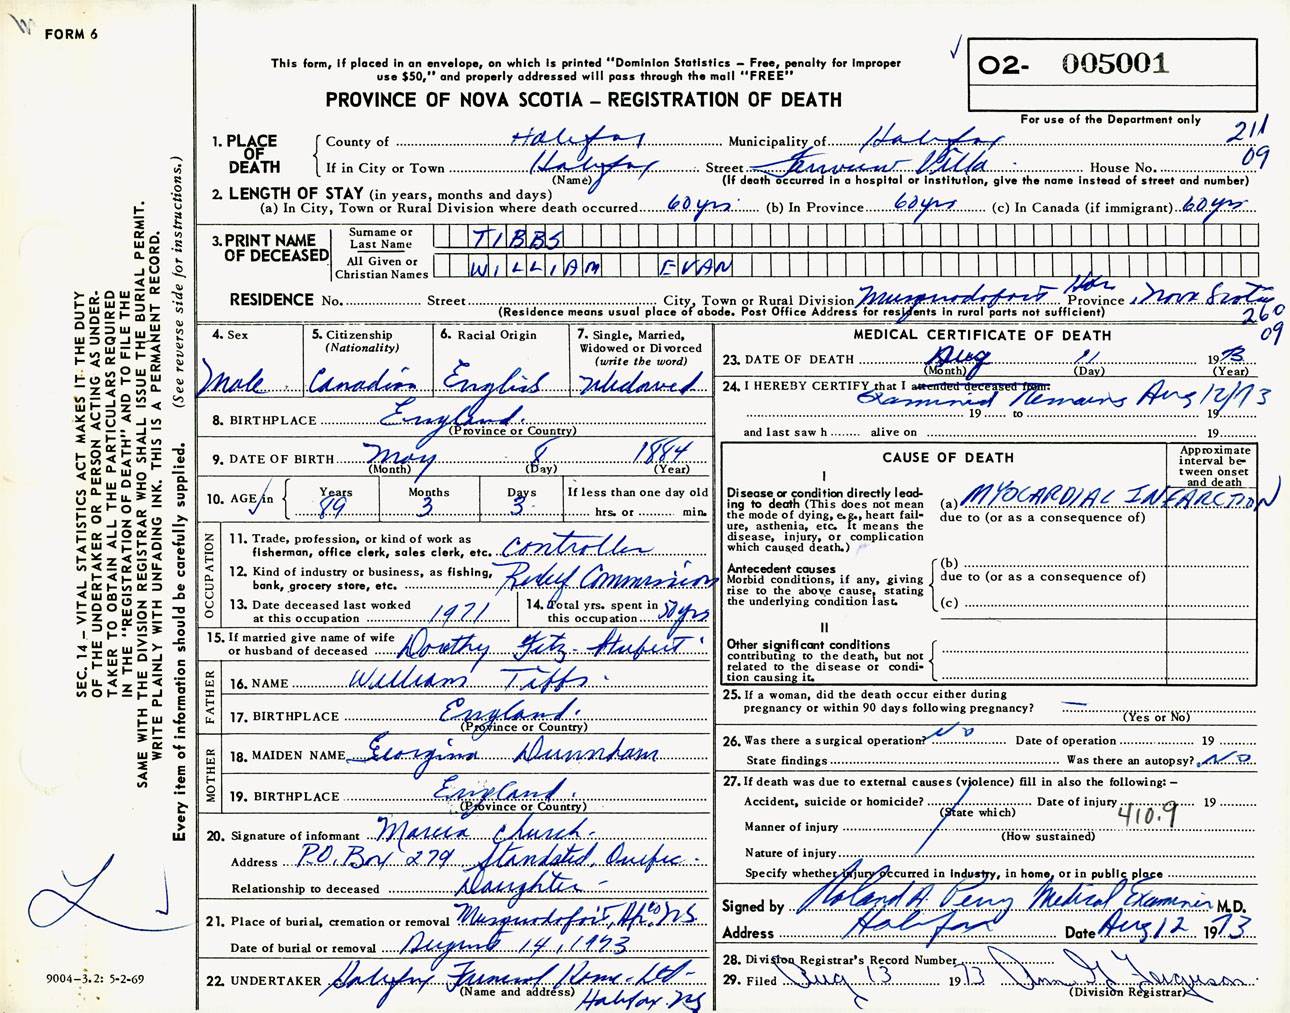 FORM 6
This form, if placed in an envelope, on which is printed "Dominion Statistics – Free, penalty for improper
use $50," and properly addressed will pass through the mail "FREE"
PROVINCE OF NOVA SCOTIA – REGISTRATION OF DEATH
02- 005001
For use of the Department only
211
09
1. PLACE OF DEATH
County of Halifax Municipality of Halifax
If in City or Town Halifax Street Villa House No.
(Name) (If death occurred in a hospital or institution, give the name instead of street and number)
2. LENGTH OF STAY (in years, months and days)
(a) In City, Town or Rural Division where death occurred 60 yrs (b) In Province 60 yrs (c) In Canada (if immigrant) 60 yrs
3. PRINT NAME OF DECEASED
Surname or Last Name TIBBS
All Given or Christian Names WILLIAM EVAN
RESIDENCE No. Street City, Town or Rural Division Musquodoboit Har Province Nova Scotia
(Residence means usual place of abode. Post Office Address for residents in rural parts not sufficient)
260
09
4. Sex Male
5. Citizenship (Nationality) Canadian
6. Racial Origin English
7. Single, Married, Widowed or Divorced (write the word) Widowed
8. BIRTHPLACE England.
(Province or Country)
9. DATE OF BIRTH May 8 1884
(Month) (Day) (Year)
10. AGE in Years 89 Months 3 Days 3 If less than one day old
hrs. or min.
OCCUPATION
11. Trade, profession, or kind of work as
fisherman, office clerk, sales clerk, etc. Controller
12. Kind of industry or business, as fishing,
bank, grocery store, etc. Relief Commission
13. Date deceased last worked
at this occupation 1971
14. Total yrs. spent in
this occupation 50 yrs
15. If married give name of wife
or husband of deceased Dorothy Fitz-
FATHER
16. NAME William Tibbs.
17. BIRTHPLACE England.
(Province or Country)
MOTHER
18. MAIDEN NAME Georgina Dunnham
19. BIRTHPLACE England.
(Province or Country)
20. Signature of informant Marcia Church-
Address P.O. Box 279 Standsted, Quebec-
Relationship to deceased Daughter-
21. Place of burial, cremation or removal Musquodoboit, Hfx Co NS
Date of burial or removal August 14, 1973
22. UNDERTAKER Halifax Funeral Home-Ltd-
(Name and address) Halifax NS
MEDICAL CERTIFICATE OF DEATH
23. DATE OF DEATH Aug 11 1973
(Month) (Day) (Year)
24. I HEREBY CERTIFY that I attended deceased from:
Examined Remains Aug 12/73
19 to 19
and last saw h alive on 19
CAUSE OF DEATH
Approximate interval between onset and death
I
Disease or condition directly leading
to death (This does not mean
the mode of dying, e.g., heart failure,
asthenia, etc. It means the
disease, injury, or complication
which caused death.)
(a) MYOCARDIAL INFARCTION
due to (or as a consequence of)
Antecedent causes
Morbid conditions, if any, giving
rise to the above cause, stating
the underlying condition last.
(b)
due to (or as a consequence of)
(c)
II
Other significant conditions
contributing to the death, but not
related to the disease or condition
causing it.
25. If a woman, did the death occur either during
pregnancy or within 90 days following pregnancy? —
(Yes or No)
26. Was there a surgical operation? No Date of operation 19
State findings Was there an autopsy? No
27. If death was due to external causes (violence) fill in also the following: –
Accident, suicide or homicide? Date of injury 19
(State which) 410.9
Manner of injury
(How sustained)
Nature of injury
Specify whether injury occurred in industry, in home, or in public place
Signed by Roland A. Perry Medical Examiner M.D.
Address Halifax Date Aug 12 1973
28. Division Registrar's Record Number
29. Filed Aug 13 1973 Ann G Ferguson
(Division Registrar)
SEC. 14 – VITAL STATISTICS ACT MAKES IT THE DUTY
OF THE UNDERTAKER OR PERSON ACTING AS UNDERTAKER
TO OBTAIN ALL THE PARTICULARS REQUIRED
IN THE "REGISTRATION OF DEATH" AND TO FILE THE
SAME WITH THE DIVISION REGISTRAR WHO SHALL ISSUE THE BURIAL PERMIT.
WRITE PLAINLY WITH UNFADING INK. THIS IS A PERMANENT RECORD.
Every item of information should be carefully supplied. (See reverse side for instructions.)
9004-3.2: 5-2-69